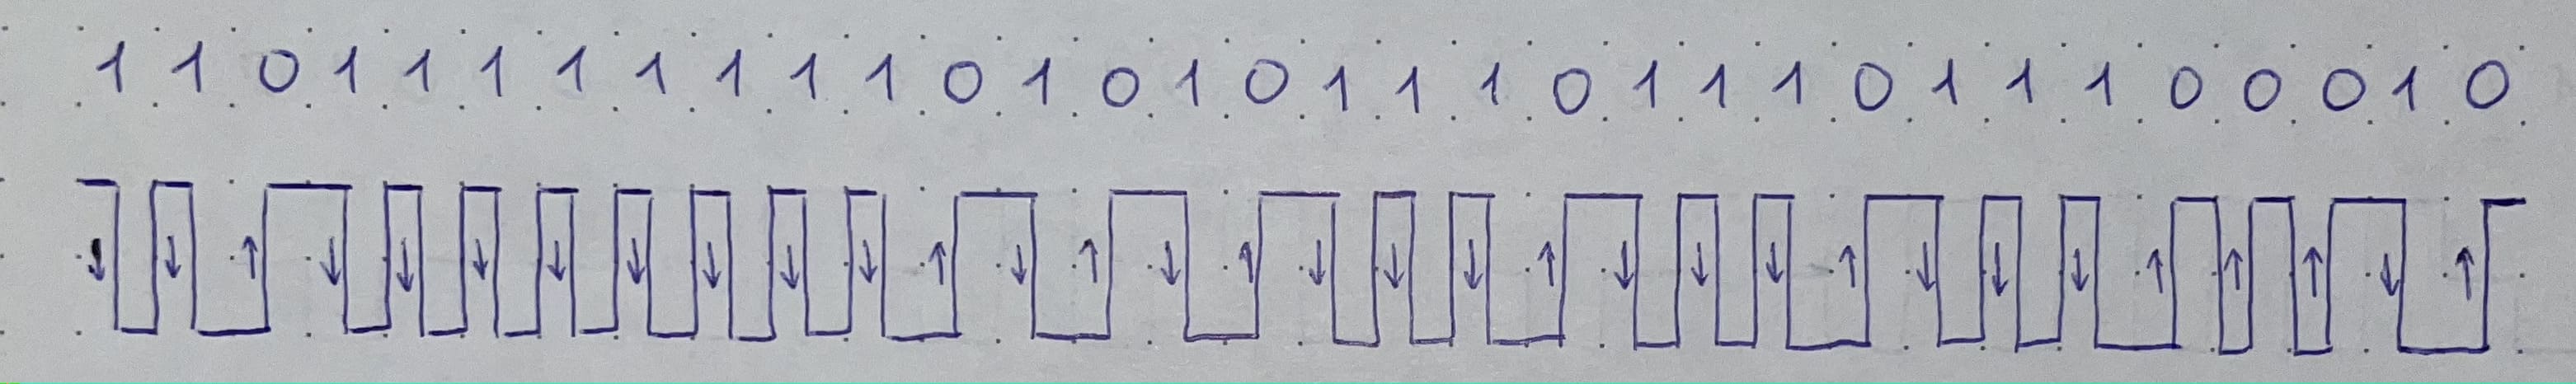 1 1 0 1 1 1 1 1 1 1 1 0 1 0 1 0 1 1 1 0 1 1 1 0 1 1 1 0 0 0 1 0
↓ ↓ ↑ ↓ ↓ ↓ ↓ ↓ ↓ ↓ ↓ ↑ ↓ ↑ ↓ ↑ ↓ ↓ ↓ ↑ ↓ ↓ ↓ ↑ ↓ ↓ ↓ ↑ ↑ ↑ ↓ ↑